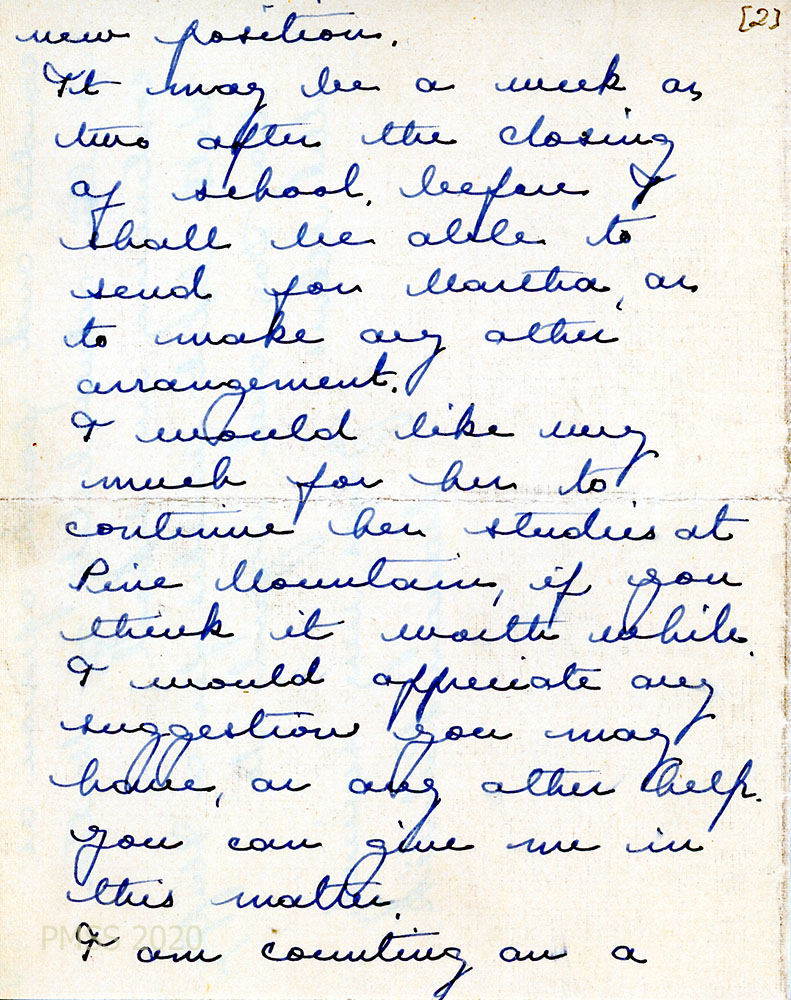 [2]
new position.
It may be a week or
two after the closing
of school, before I
shall be able to
send for Martha, or
to make any other
arrangement.
I would like very
much for her to
continue her studies at
Pine Mountain, if you
think it worth while.
I would appreciate any
suggestion you may
have, or any other help.
you can give me in
this matter.
I am counting on a
PMSS 2020